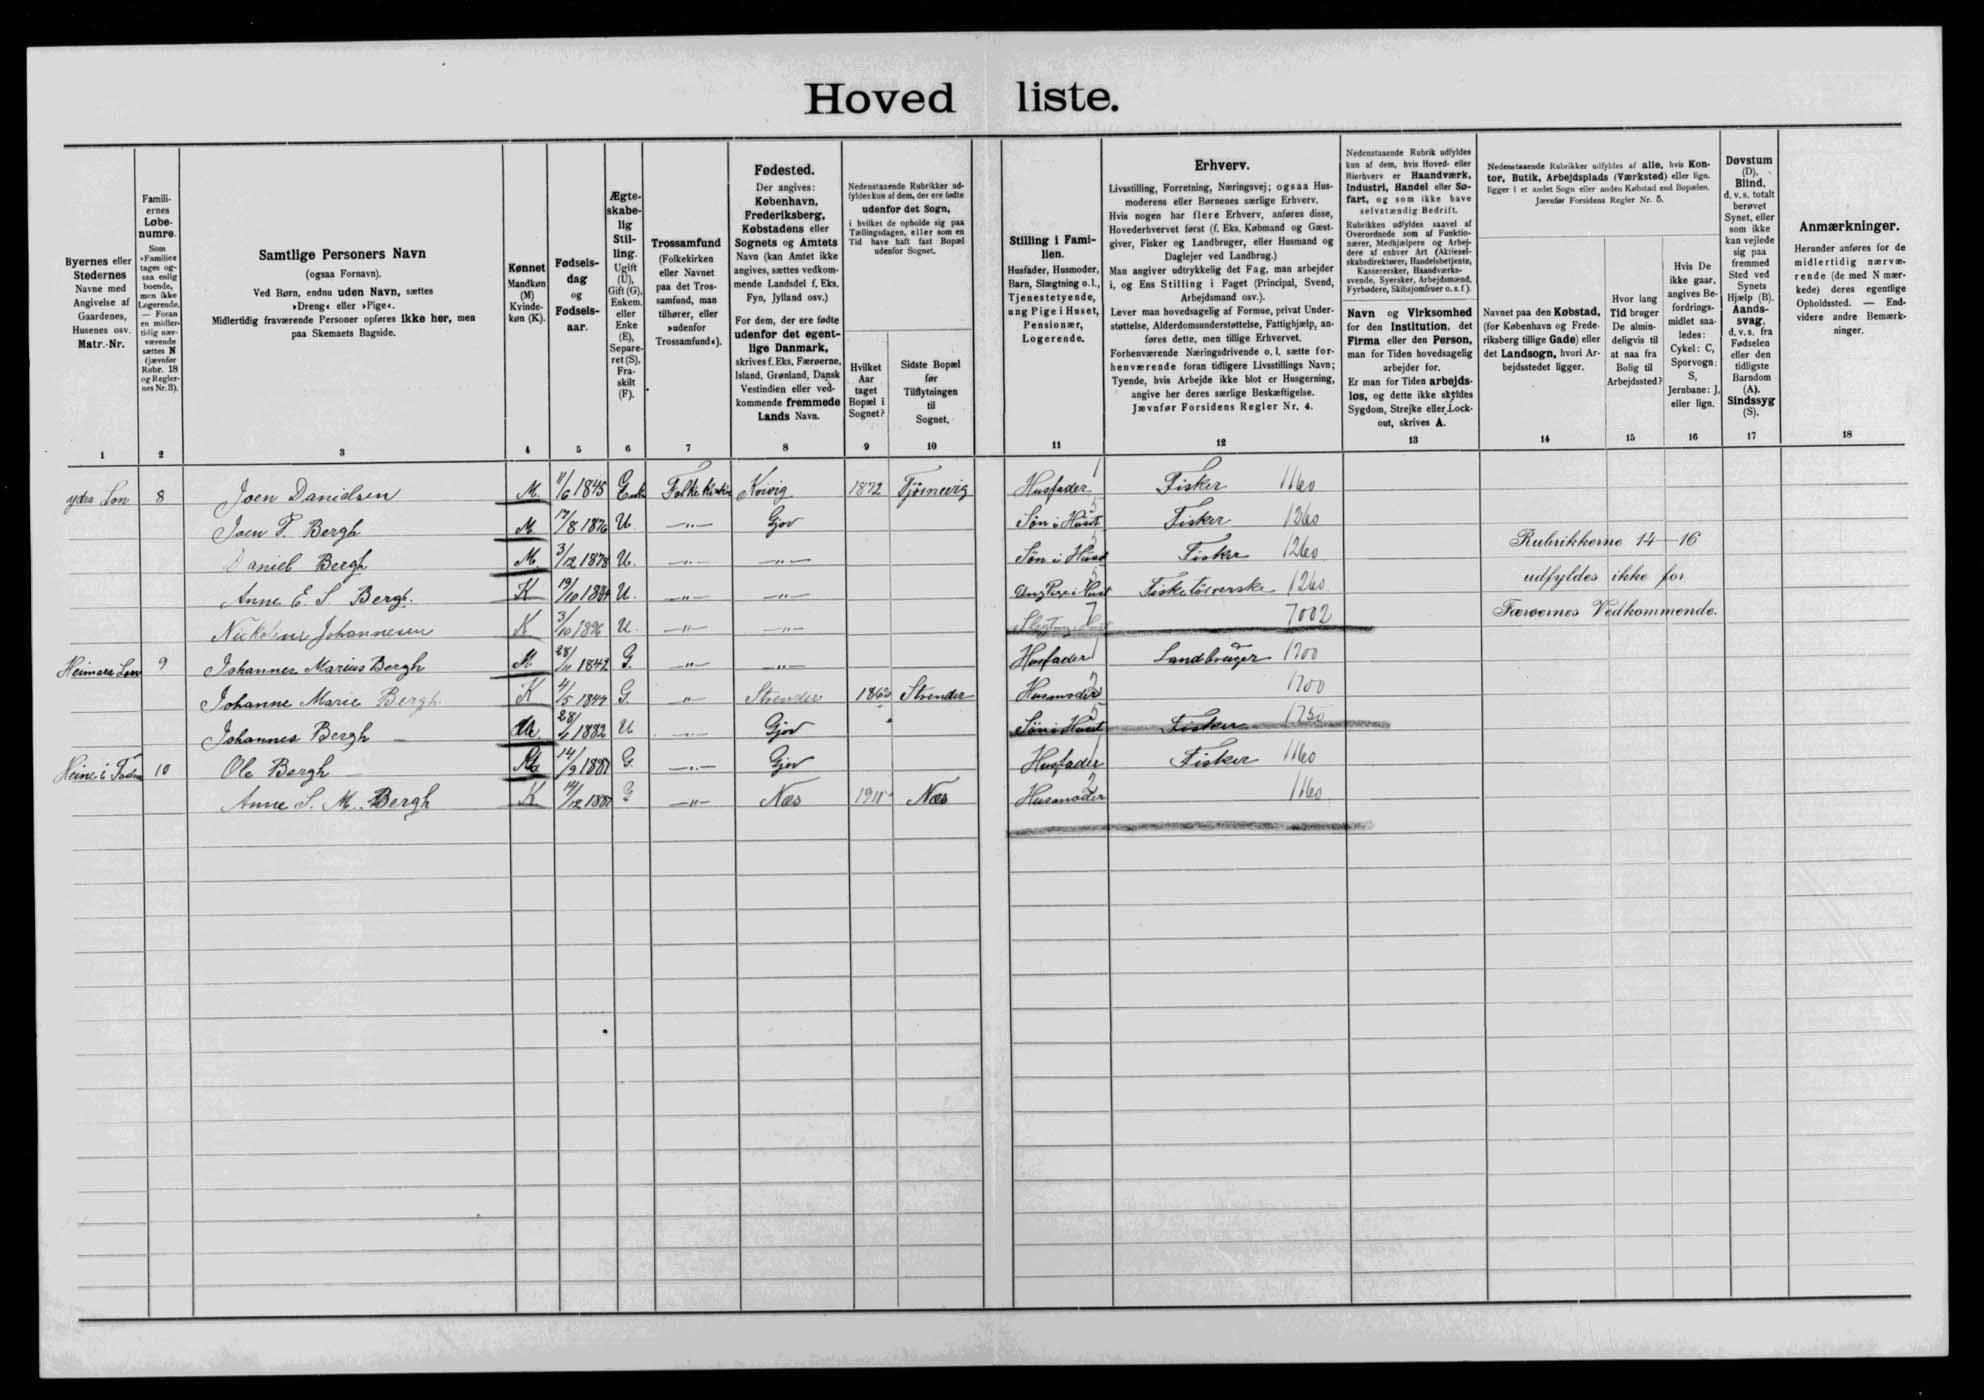 Hoved liste.
Byernes eller
Stedernes
Navne med
Angivelse af
Gaardenes,
Husenes osv.
Matr.-Nr.
1
Famili-
ernes
Løbe-
numre.
Som
»Familie«
tages og-
saa enlig
boende,
men ikke
Logerende.
— Foran
en midler-
tidig nær-
værende
sættes N
(jævnfør
Rubr. 18
og Regler-
nes Nr. 3).
2
Samtlige Personers Navn
(ogsaa Fornavn).
Ved Børn, endnu uden Navn, sættes
»Dreng« eller »Pige«.
Midlertidig fraværende Personer opføres ikke her, men
paa Skemaets Bagside.
3
Kønnet
Mandkøn
(M)
Kvinde-
køn (K).
4
Fødsels-
dag
og
Fødsels-
aar.
5
Ægte-
skabe-
lig
Stil-
ling.
Ugift
(U),
Gift (G),
Enkem.
eller
Enke
(E),
Separe-
ret (S),
Fra-
skilt
(F).
6
Trossamfund
(Folkekirken
eller Navnet
paa det Tros-
samfund, man
tilhører, eller
»udenfor
Trossamfund«).
7
Fødested.
Der angives:
København,
Frederiksberg,
Købstadens eller
Sognets og Amtets
Navn (kan Amtet ikke
angives, sættes vedkom-
mende Landsdel f. Eks.
Fyn, Jylland osv.)
For dem, der ere fødte
udenfor det egent-
lige Danmark,
skrives f. Eks. Færøerne,
Island, Grønland, Dansk
Vestindien eller ved-
kommende fremmede
Lands Navn.
8
Nedenstaaende Rubrikker ud-
fyldes kun af dem, der ere fødte
udenfor det Sogn,
i hvilket de opholde sig paa
Tællingsdagen, eller som en
Tid have haft fast Bopæl
udenfor Sognet.
Hvilket
Aar
taget
Bopæl i
Sognet?
9
Sidste Bopæl
før
Tilflytningen
til
Sognet.
10
Stilling i Fami-
lien.
Husfader, Husmoder,
Barn, Slægtning o. l.,
Tjenestetyende,
ung Pige i Huset,
Pensionær,
Logerende.
11
Erhverv.
Livsstilling, Forretning, Næringsvej; ogsaa Hus-
moderens eller Børnenes særlige Erhverv.
Hvis nogen har flere Erhverv, anføres disse,
Hovederhvervet først (f. Eks. Købmand og Gæst-
giver, Fisker og Landbruger, eller Husmand og
Daglejer ved Landbrug.)
Man angiver udtrykkelig det Fag, man arbejder
i, og Ens Stilling i Faget (Principal, Svend,
Arbejdsmand osv.).
Lever man hovedsagelig af Formue, privat Under-
støttelse, Alderdomsunderstøttelse, Fattighjælp, an-
føres dette, men tillige Erhvervet.
Forhenværende Næringsdrivende o. l. sætte for-
henværende foran tidligere Livsstillings Navn;
Tyende, hvis Arbejde ikke blot er Husgerning,
angive her deres særlige Beskæftigelse.
Jævnfør Forsidens Regler Nr. 4.
12
Nedenstaaende Rubrik udfyldes
kun af dem, hvis Hoved- eller
Bierhverv er Haandværk,
Industri, Handel eller Sø-
fart, og som ikke have
selvstændig Bedrift.
Rubrikken udfyldes saavel af
Overordnede som af Funktio-
nærer, Medhjælpere og Arbej-
dere af enhver Art (Aktiesel-
skabsdirektører, Handelsbetjente,
Kassererskør, Haandværks-
svende, Syersker, Arbejdsmænd,
Fyrbødere, Skibsjomfruer o. s. f.).
Navn og Virksomhed
for den Institution, det
Firma eller den Person,
man for Tiden hovedsagelig
arbejder for.
Er man for Tiden arbejds-
løs, og dette ikke skyldes
Sygdom, Strejke eller Lock-
out, skrives A.
13
Nedenstaaende Rubrikker udfyldes af alle, hvis Kon-
tor, Butik, Arbejdsplads (Værksted) eller lign.
ligger i et andet Sogn eller anden Købstad end Bopælen.
Jævnfør Forsidens Regler Nr. 5.
Navnet paa den Købstad,
(for København og Frede-
riksberg tillige Gade) eller
det Landsogn, hvori Ar-
bejdsstedet ligger.
14
Hvor lang
Tid bruger
De almin-
deligvis til
at naa fra
Bolig til
Arbejdssted?
15
Hvis De
ikke gaar,
angives Be-
fordrings-
midlet saa-
ledes:
Cykel: C,
Sporvogn:
S,
Jernbane: J,
eller lign.
16
Døvstum
(D),
Blind,
d. v. s. totalt
berøvet
Synet, eller
som ikke
kan vejlede
sig paa
fremmed
Sted ved
Synets
Hjælp (B).
Aands-
svag,
d. v. s. fra
Fødselen
eller den
tidligste
Barndom
(A).
Sindssyg
(S).
17
Anmærkninger.
Herunder anføres for de
midlertidig nærvæ-
rende (de med N mær-
kede) deres egentlige
Opholdssted. — End-
videre andre Bemærk-
ninger.
18
ydra Lon 8 Joen Danielsen M 11/6 1845 Enke Folkekirken Kvivig 1872 Tjörnevig Husfader 1 Fisker 1160
Joen F. Bergh M 17/8 1876 U. —"— Gjov Søn i Huset 5 Fisker 1260
Daniel Bergh M 3/12 1878 U. —"— —"— Søn i Huset 5 Fisker 1260
Rubrikkerne 14—16
Anne E. S Bergh. K 19/10 1884 U. —"— —"— Ung Pige i Huset 5 Fisketörverske 1260
udfyldes ikke for
Nickoline Johannesen K 3/10 1896 U. —"— —"— 7 7002
Færøernes Vedkommende.
Heimara Lon 9 Johannes Marius Bergh M 28/11 1842 G. —"— —"— Husfader 1 Landbruger 1700
Johanne Marie Bergh K 4/5 1844 G. " Strender 1862 Strender Husmoder 2 1700
Johannes Bergh M 28/4 1882 U —"— Gjov Søn i Huset 5 Fisker 1750
Heine i Todnu 10 Ole Bergh M 14/9 1881 G. —"— Gjov Husfader 1 Fisker 1160
Anne S. M. Bergh K 14/12 1881 G —"— Næs 1911 Næs Husmoder 2 1160